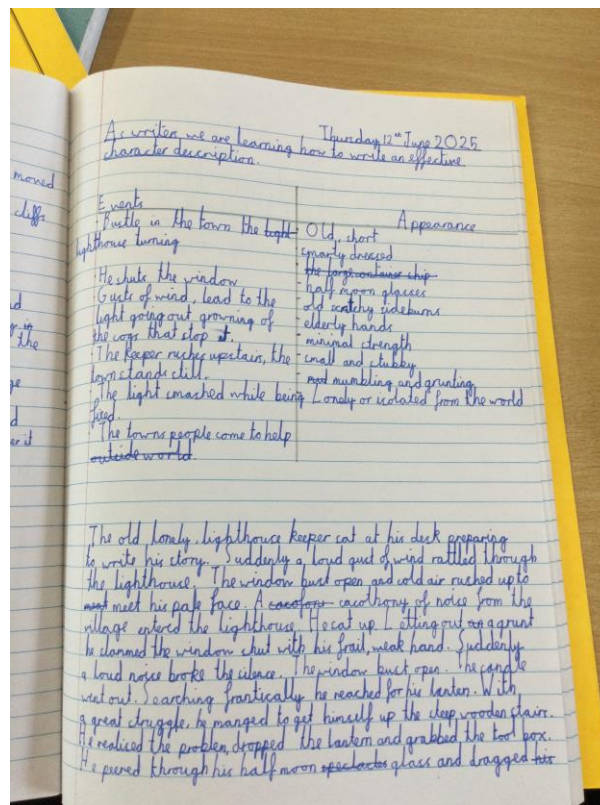 moved
cliffs
the
er it
Thursday 12th June 2025
As writers we are learning how to write an effective
character description.
Events
· Bustle in the town the light
lighthouse turning
· He shuts the window
Gusts of wind, lead to the
light going out growning of
the cogs that stop it.
· The keeper rushes upstairs, the
town stands still.
The light smashed while being
fixed.
· The towns people come to help
outside world.
Appearance
- Old, short
smartly dressed
- the large container ship
- half moon glasses
- old scratchy sideburns
- elderly hands
- minimal strength
- small and stubby
- mumbling and grunting
Lonely or isolated from the world
The old, lonely, lighthouse keeper sat at his desk preparing
to write his story. Suddenly a loud gust of wind rattled through
the lighthouse. The window bust open and cold air rushed up to
meet his pale face. A cacofons cacothony of noise from the
village entered the lighthouse. He sat up. Letting out an a grunt
he slammed the window shut with his frail, weak hand. Suddenly
a loud noise broke the silence. The window bust open. The candle
went out. Searching frantically he reached for his lanten. With
a great struggle, he manged to get himself up the steep wooden stairs.
He realised the problem, dropped the lantern and grabbed the tool box.
He peered through his half moon spectacles glass and dragged his